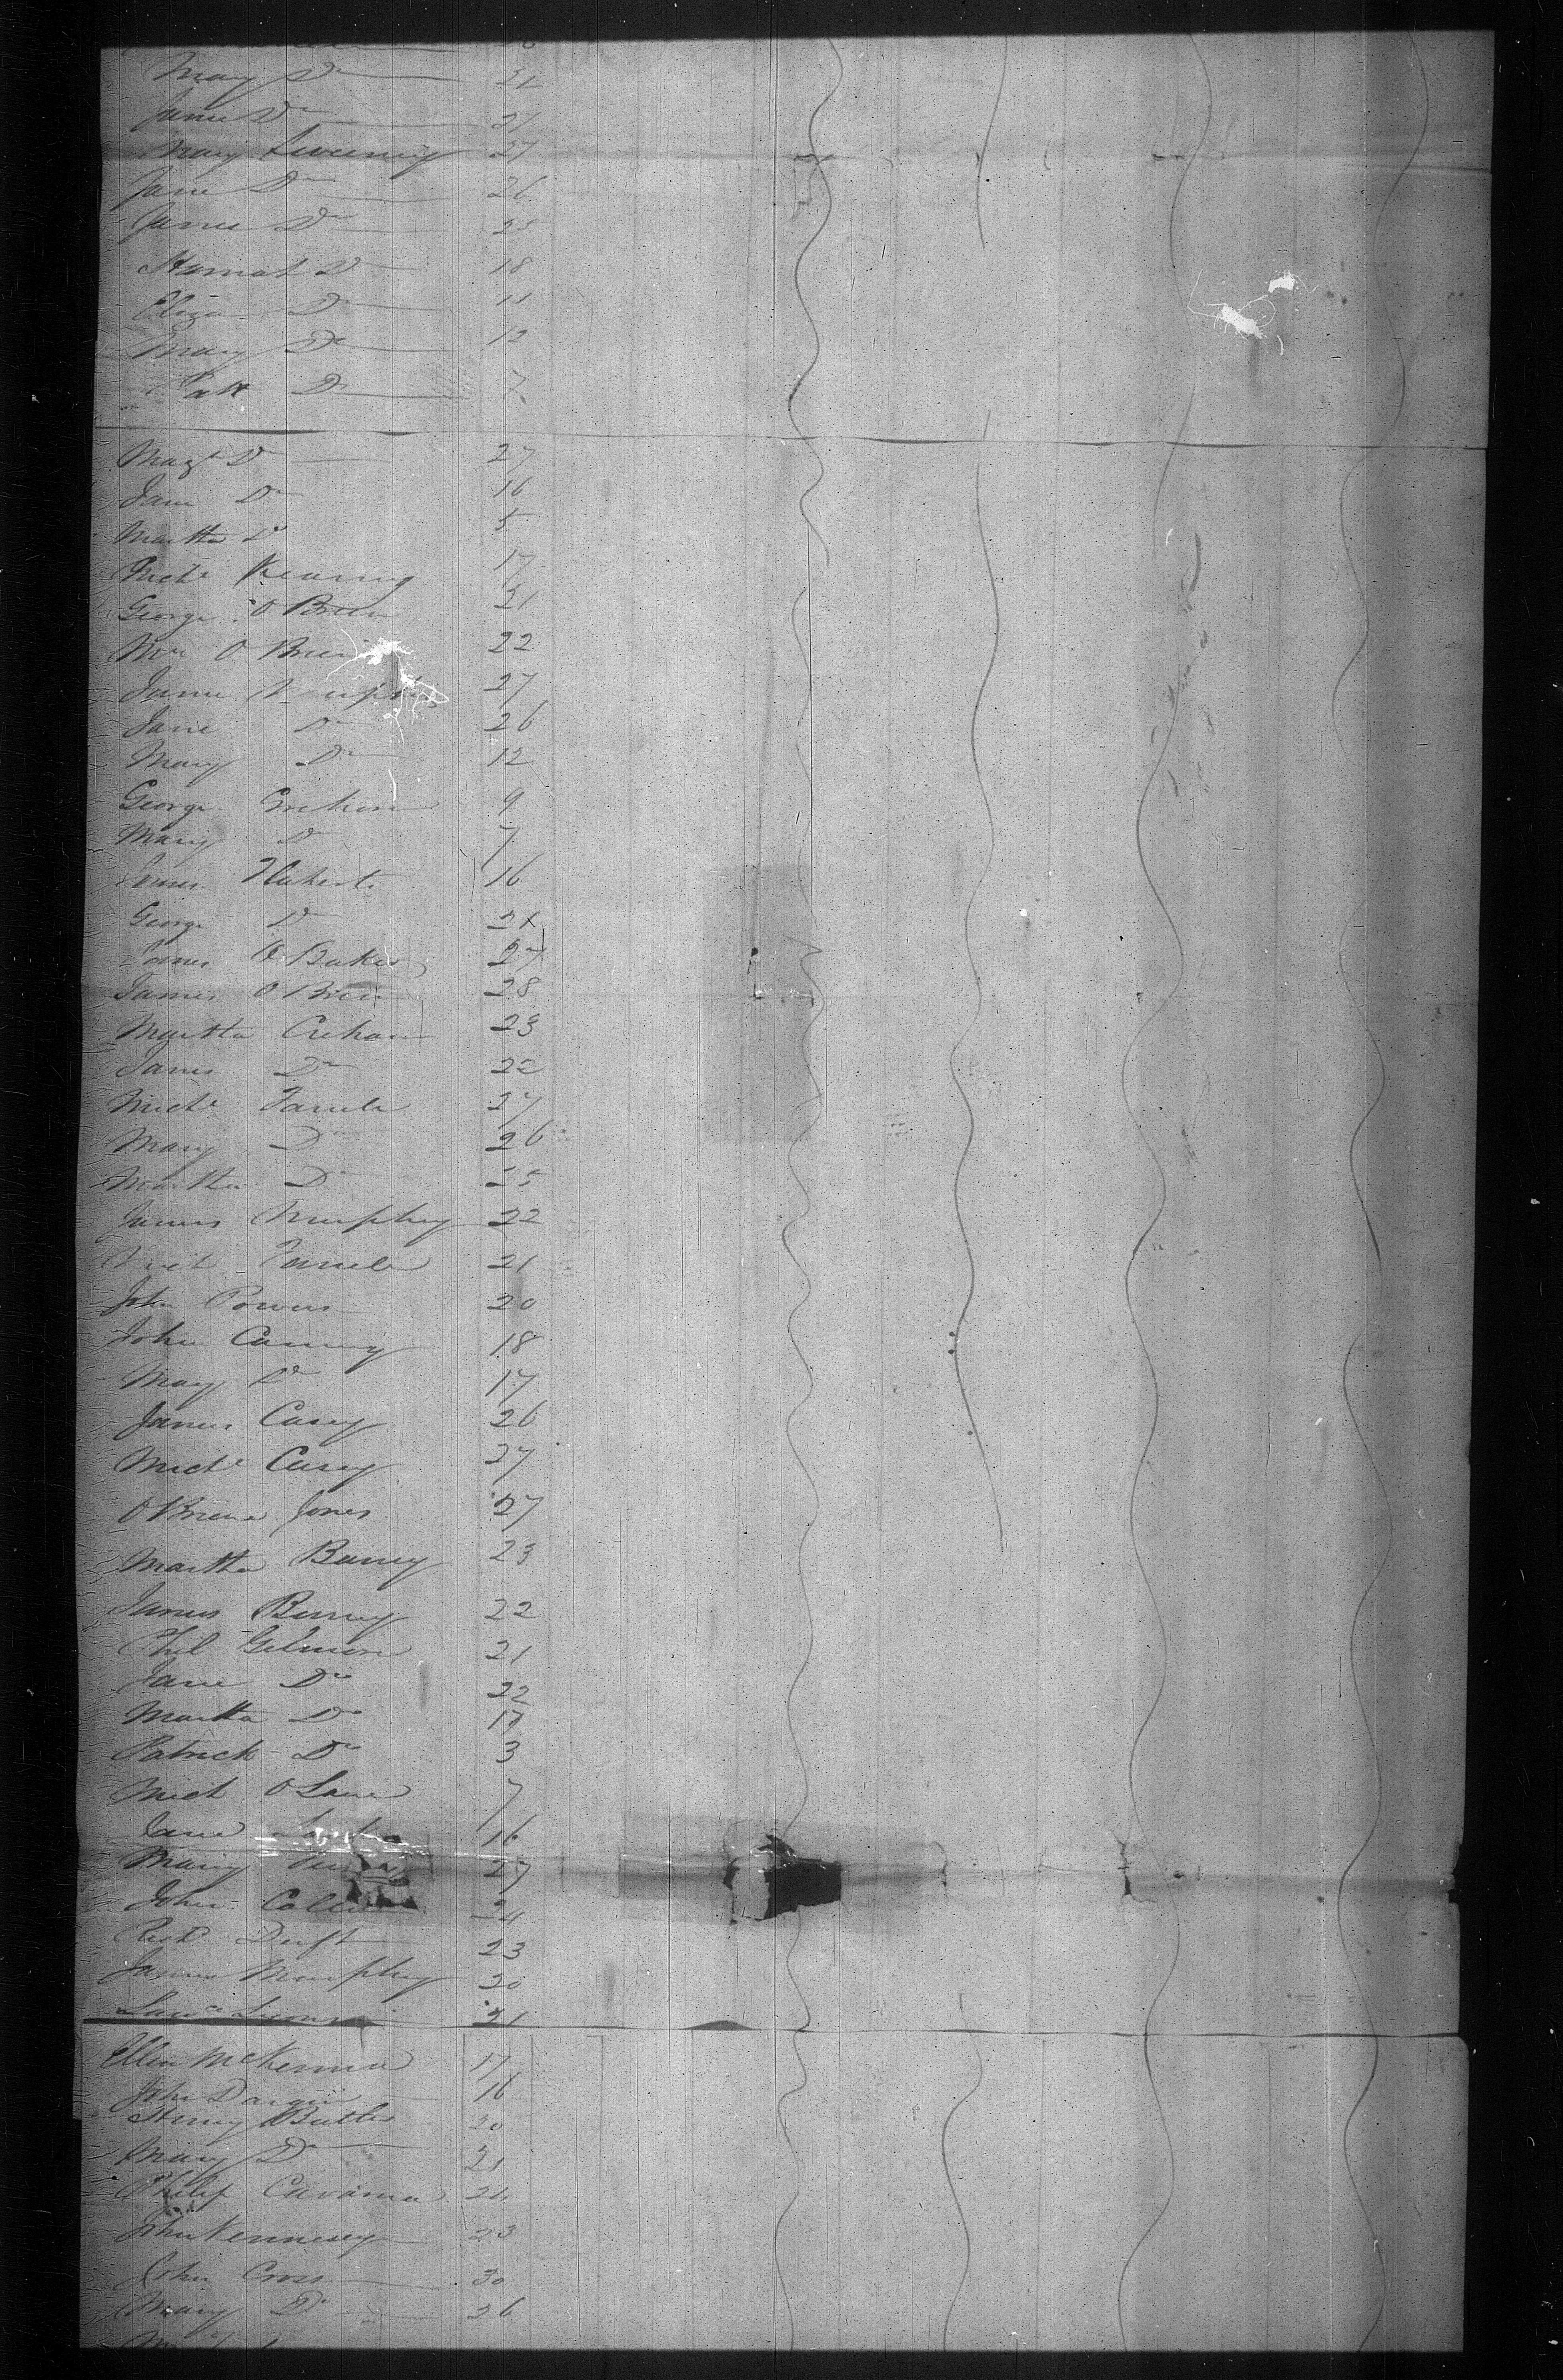 Mary Do 32
James Do 21
Mary Sweeney 27
Jane Do 26
James Do 25
Hannah Do 18
Eliza Do 11
Mary Do 12
Patk Do 7
Magt Do 27
Jane Do 16
Martha Do 5
Michl Kearney 17
George O Brien 21
Mr O Brien 22
James Murphy 27
Jane Do 26
Mary Do 12
George Crehan 9
Mary Do 7
James 16
George Do
James O Baker 27
James O Brien 28
Martha Crehan 23
James Do 22
Michl Farrele 27
Mary Do 26
Martha Do 25
James Murphy 22
Mich Farrele 21
John Powers 20
John Canny 18
Mary Do 17
James Casey 26
Michl Casey 27
O Briene Jones 27
Martha Burney 23
James Burney 22
Phil Gelmore 21
Jane Do 22
Martha Do 17
Patrick Do 3
Mich O Lane 7
Jane 16
Mary 27
John 24
Richd Duft 23
James Murphy 20
Lawce Lyons 21
Ellen McKenna 17
John 16
Henry Butler 20
Mary Do 21
Philip Cavana 24
John Kennesey 23
John Cross 30
Mary Do 26